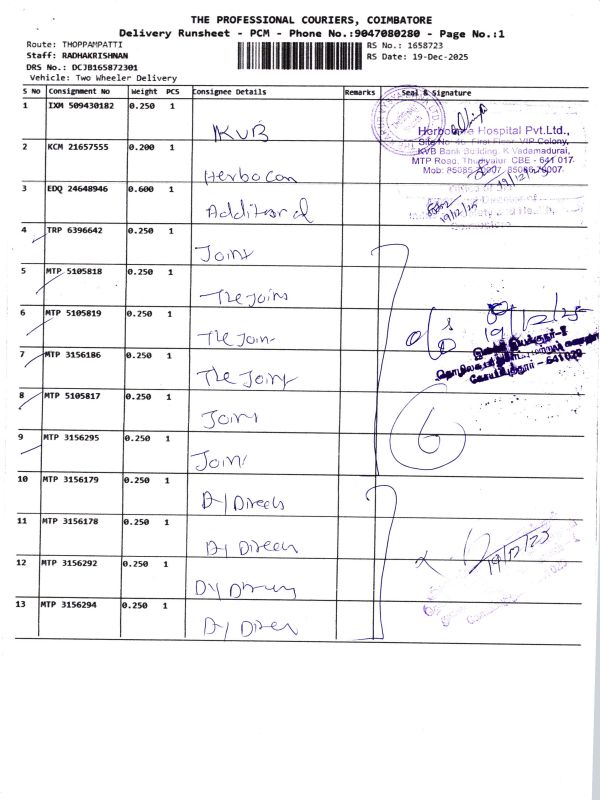 THE PROFESSIONAL COURIERS, COIMBATORE
Delivery Runsheet - PCM - Phone No.:9047080280 - Page No.:1
Route: THOPPAMPATTI
RS No.: 1658723
Staff: RADHAKRISHNAN
RS Date: 19-Dec-2025
DRS No.: DCJB165872301
Vehicle: Two Wheeler Delivery
S No Consignment No Weight PCS Consignee Details Remarks Seal & Signature
1 IXM 509430182 0.250 1 KVB
2 KCM 21657555 0.200 1 Herbocon
3 EDQ 24648946 0.600 1 Additional
4 TRP 6396642 0.250 1 Joint
5 MTP 5105818 0.250 1 The Join
6 MTP 5105819 0.250 1 The Join
7 MTP 3156186 0.250 1 The Joint
8 MTP 5105817 0.250 1 Joint
9 MTP 3156295 0.250 1 Join
10 MTP 3156179 0.250 1
11 MTP 3156178 0.250 1
12 MTP 3156292 0.250 1
13 MTP 3156294 0.250 1
Hospital Pvt.Ltd.,
First Floor, VIP Colony,
KVB Bank Building, K Vadamadurai,
MTP Road, Thudiyalur CBE - 641 017
19/12/25
19/12/25
19/12/25
641029
6
19/12/25